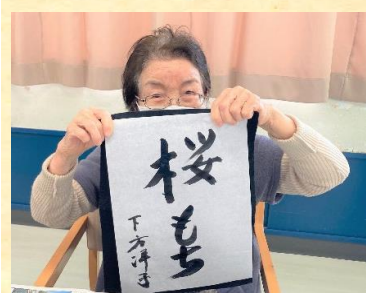 桜もち
下方洋子